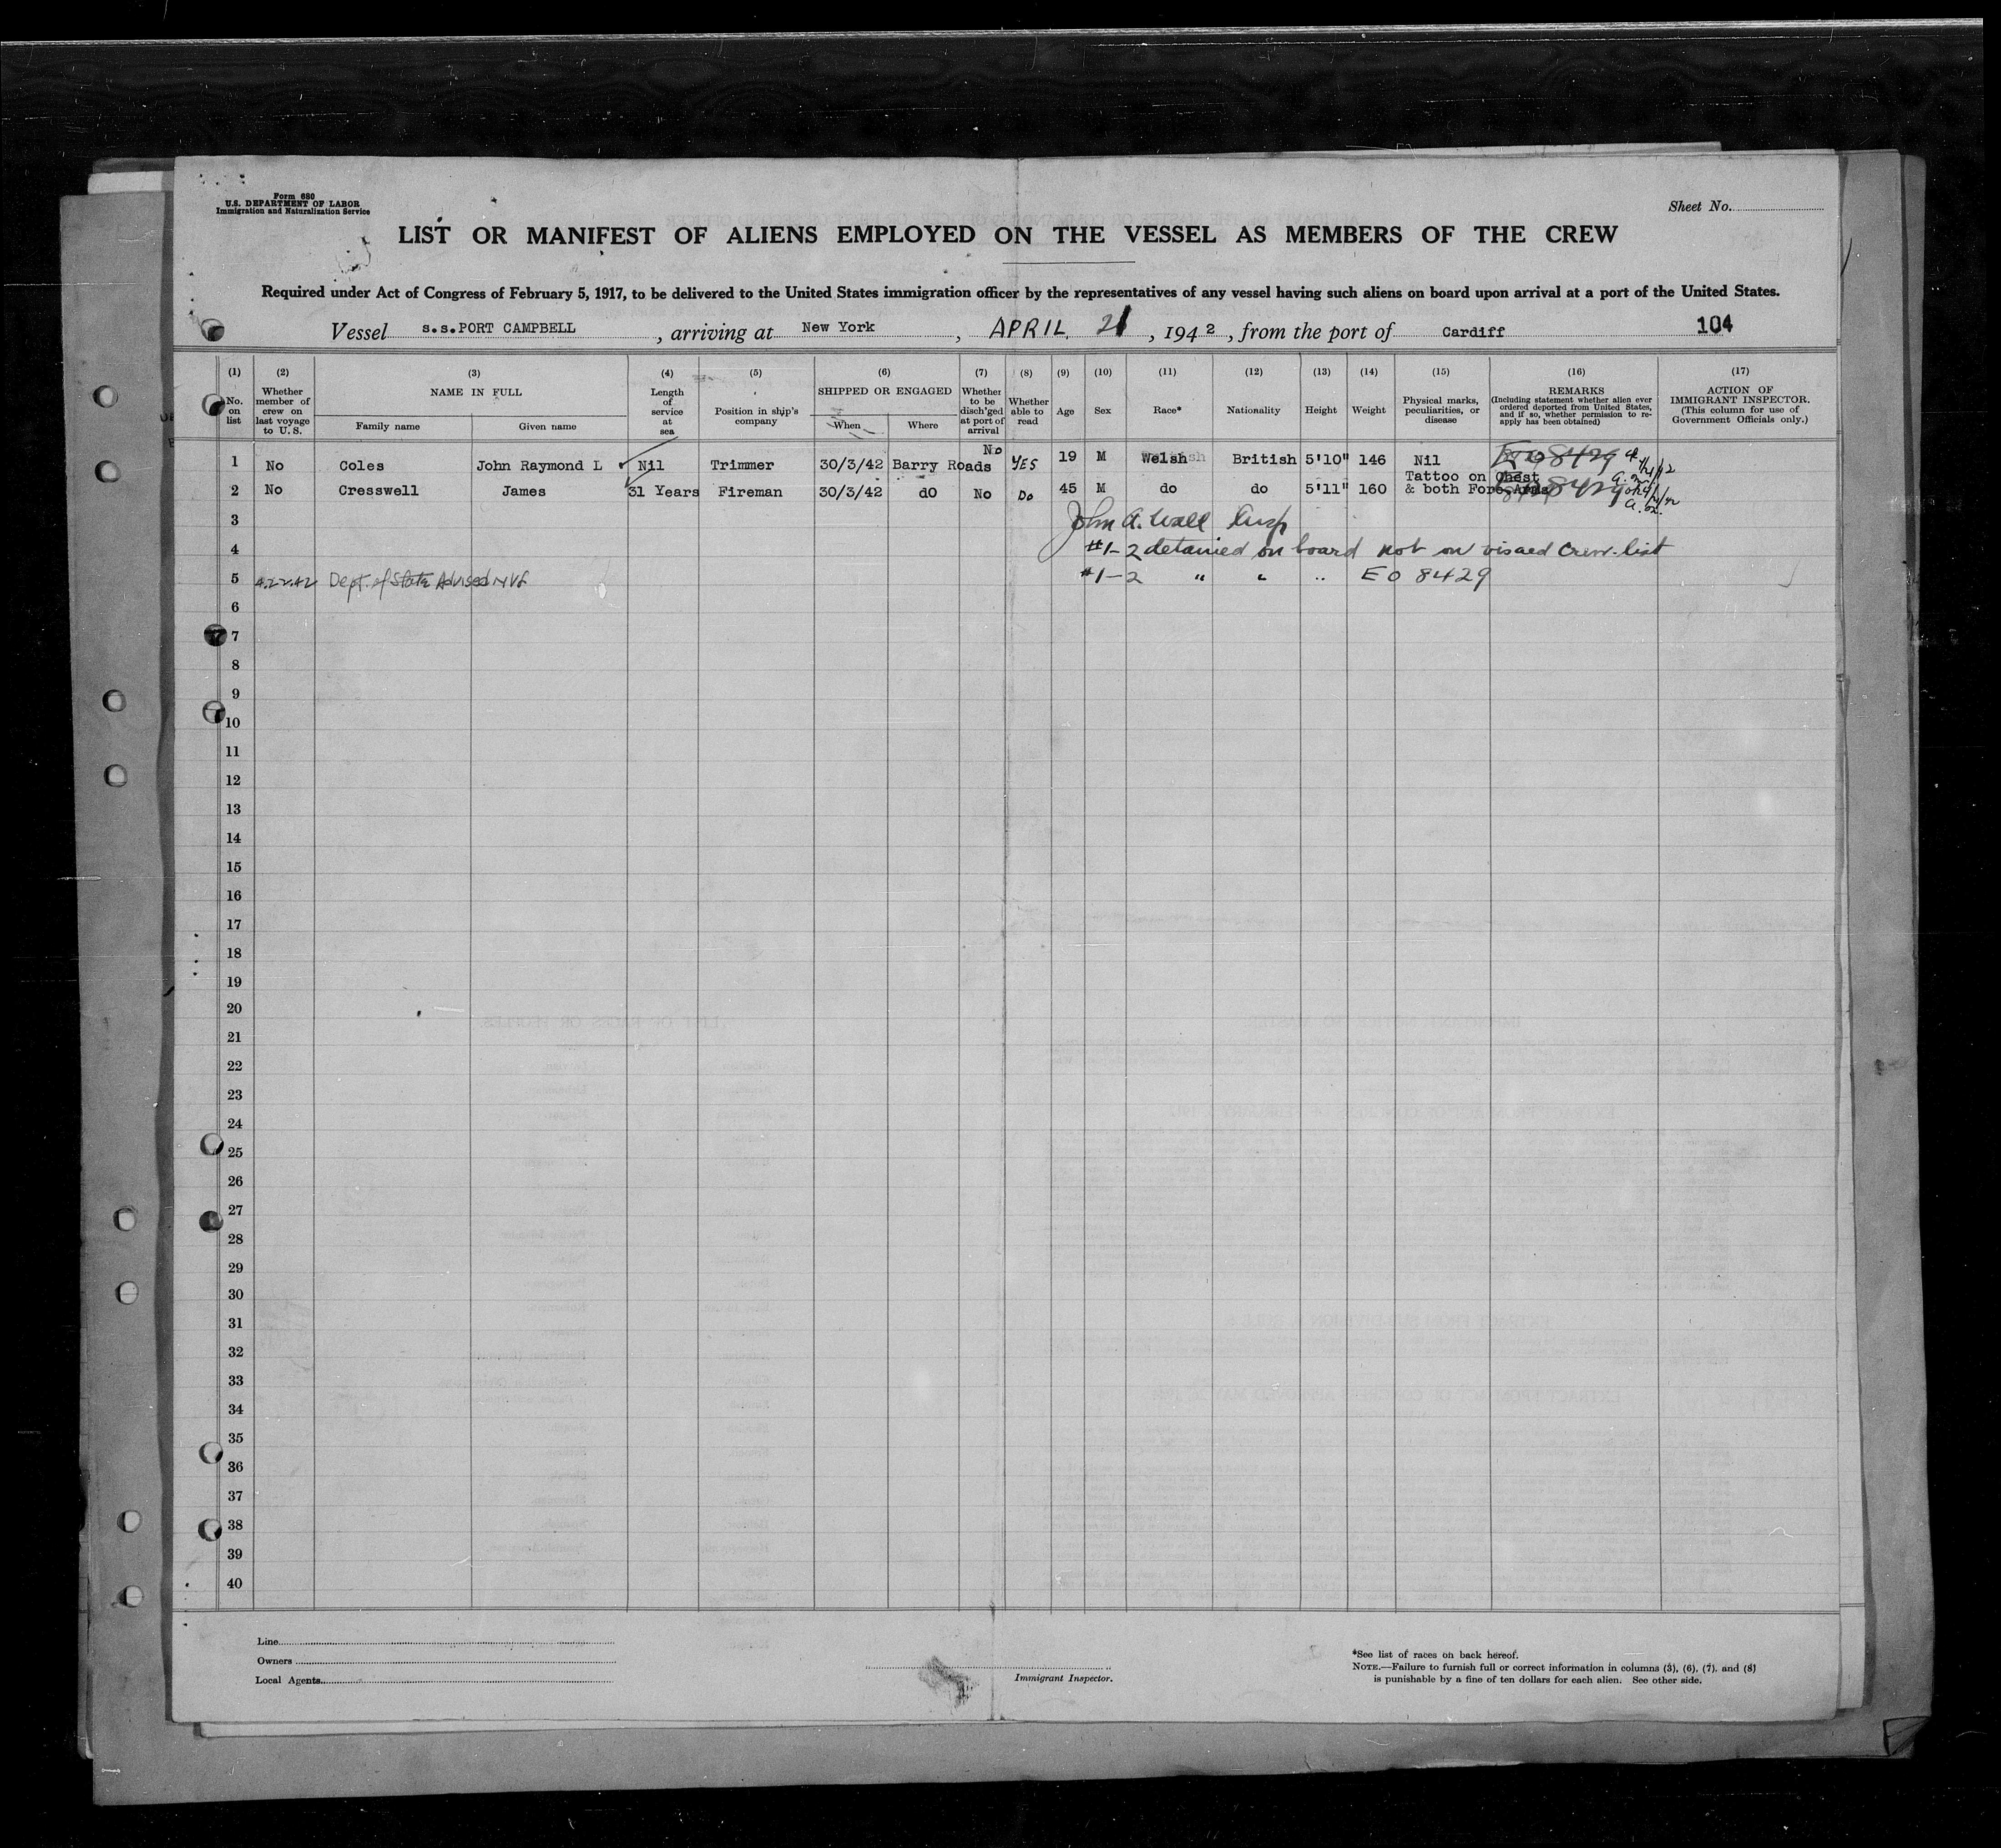 Form 680
U.S. DEPARTMENT OF LABOR
Immigration and Naturalization Service
Sheet No.
LIST OR MANIFEST OF ALIENS EMPLOYED ON THE VESSEL AS MEMBERS OF THE CREW
Required under Act of Congress of February 5, 1917, to be delivered to the United States immigration officer by the representatives of any vessel having such aliens on board upon arrival at a port of the United States.
Vessel s.s.PORT CAMPBELL, arriving at New York, APRIL 21, 1942, from the port of Cardiff 104
(1) No. on list
(2) Whether member of crew on last voyage to U. S.
(3) NAME IN FULL Family name Given name
(4) Length of service at sea
(5) Position in ship's company
(6) SHIPPED OR ENGAGED When Where
(7) Whether to be disch'ged at port of arrival
(8) Whether able to read
(9) Age
(10) Sex
(11) Race*
(12) Nationality
(13) Height
(14) Weight
(15) Physical marks, peculiarities, or disease
(16) REMARKS (Including statement whether alien ever ordered deported from United States, and if so, whether permission to re-apply has been obtained)
(17) ACTION OF IMMIGRANT INSPECTOR. (This column for use of Government Officials only.)
1 No Coles John Raymond L Nil Trimmer 30/3/42 Barry Roads No YES 19 M Welsh British 5'10" 146 Nil EO 8429
2 No Cresswell James 31 Years Fireman 30/3/42 do No Do 45 M do do 5'11" 160 Tattoo on Chest & both Fore-Arms 8429
3 John A. Wall Insp
4 #1-2 detained on board not on visaed Crew-list
5 4.22.42 Dept. of State Advised #1-2 " " " EO 8429
6
7
8
9
10
11
12
13
14
15
16
17
18
19
20
21
22
23
24
25
26
27
28
29
30
31
32
33
34
35
36
37
38
39
40
Line
Owners
Local Agents
Immigrant Inspector.
*See list of races on back hereof.
NOTE.—Failure to furnish full or correct information in columns (3), (6), (7), and (8)
is punishable by a fine of ten dollars for each alien. See other side.